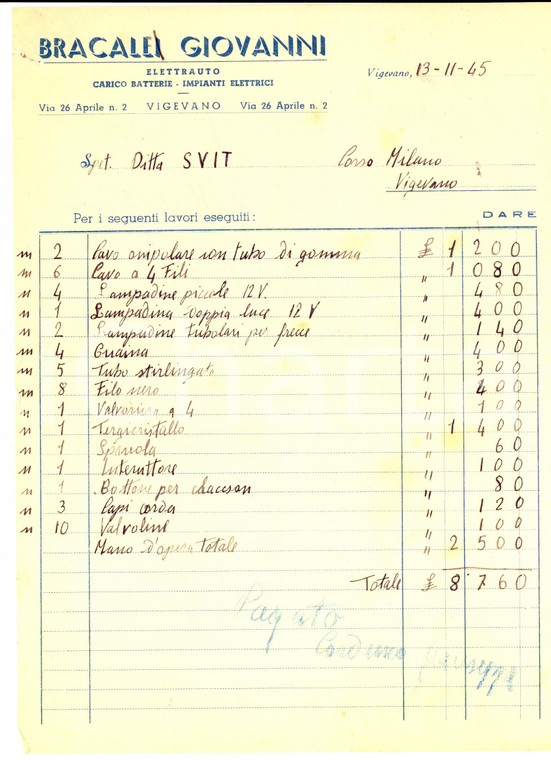 BRACALE GIOVANNI
ELETTRAUTO
CARICO BATTERIE - IMPIANTI ELETTRICI
Via 26 Aprile n. 2 VIGEVANO Via 26 Aprile n. 2
Vigevano, 13-11-45
Spet. Ditta SVIT Corso Milano
Vigevano
Per i seguenti lavori eseguiti: DARE
m 2 Cavo unipolare con tubo di gomma £ 1 200
m 6 Cavo a 4 Fili " 1 080
n 4 Lampadine piccole 12 V. " 480
n 1 Lampadina doppia luce 12 V " 400
n 2 Lampadine tubolari per frecce " 140
m 4 Guaina " 400
m 5 Tubo stirlingato " 300
m 8 Filo nero " 400
n 1 Valvoliera a 4 " 100
n 1 Tergicristallo " 1 400
n 1 Spinola " 60
n 1 Interuttore " 100
n 1 Bottone per clacson " 80
n 3 Capi corda " 120
n 10 Valvoline " 100
Mano d'opera totale " 2 500
Totale £ 8 760
Pagato